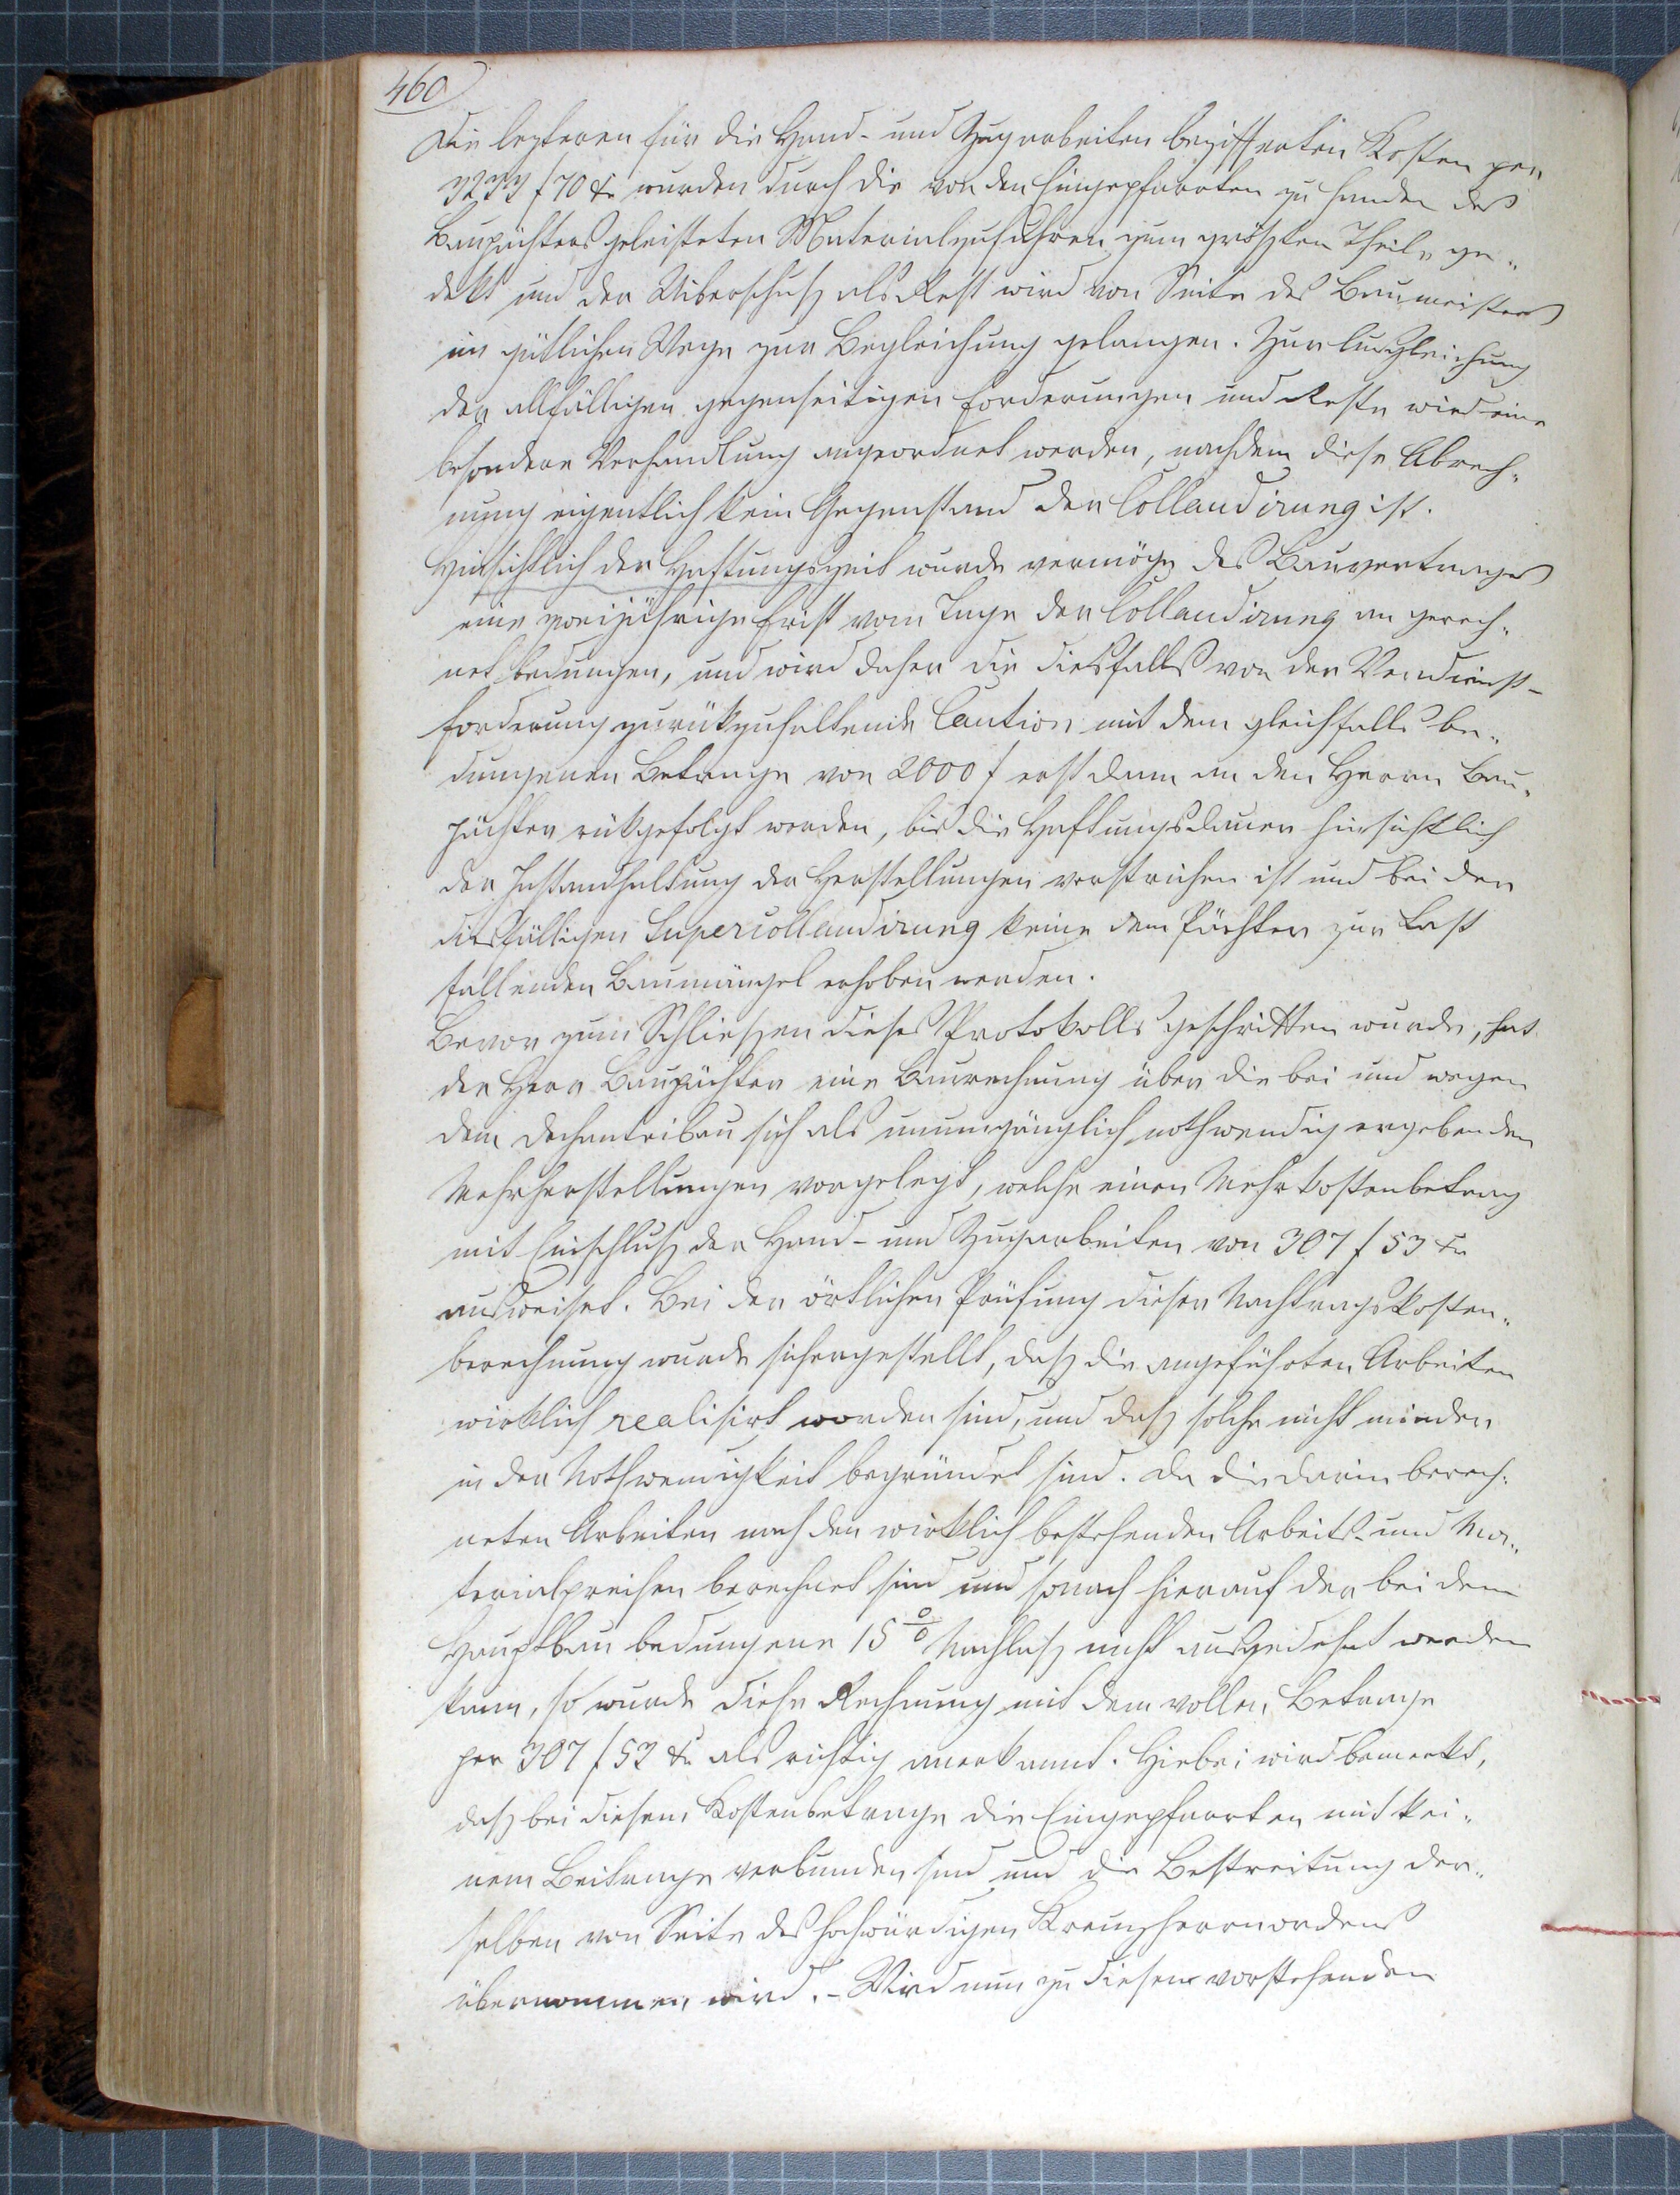 460
Die lezteren für die Hand- und Zugarbeiten bezifferten Kosten per
3233 f 70 xr wurden durch die von den Eingepfarrten zu Handen des
Baupächters geleisteten Materialzufuhren zum größten Theile ge„
dekt und der Uiberschuß als Rest wird von Seite des Baumeisters
im gütlichen Wege zur Begleichung gelangen. Zur Ausgleichung
der allfälligen gegenseitigen Forderungen und Reste wird eine
besondere Verhandlung angeordnet werden, nachdem diese Abrech„
nung eigentlich kein Gegenstand der Collaudirung ist.
Hinsichtlich der Haftungszeit wurde vermöge des Bauvertrages
eine zweijährige Frist vom Tage der Collaudirung an gerech„
net bedungen, und wird daher die diesfalls von der Verdienst-
forderung zurükzuhaltende Caution mit dem gleichfalls be„
dungenen Betrage von 2000 f erst dann an den Herrn Bau„
pächter rükgefolgt werden, bis die Haftungsdauer hinsichtlich
der Instandhaltung der Herstellungen verstrichen ist und bei der
diesfälligen Supercollaudirung keine dem Pächter zur Last
fallenden Baumängel erhoben werden.
Bevor zum Schließen dieses Protokolls geschritten wurde, hat
der Herr Baupächter eine Baurechnung über die bei und wegen
dem Dechanteibau sich als unumgänglich nothwendig ergebenden
Mehrherstellungen vorgelegt, welche einen Mehrkostenbetrag
mit Einschluß der Hand- und Zugarbeiten von 307 f 53 xr
ausweiset. Bei der örtlichen Prüfung dieser Nachtragskosten„
berechnung wurde sichergestellt, daß die angeführten Arbeiten
wirklich realisirt worden sind, und daß solche nicht minder
in der Nothwendigkeit begründet sind. Da die darin berech„
neten Arbeiten nach den wirklich bestehenden Arbeits- und Ma„
terialpreisen berechnet sind und sonach hierauf der bei dem
Hauptbau bedungene 15 % Nachlaß nicht ausgedehnt werden
kann, so wurde diese Rechnung mit dem vollen Betrage
per 307 f 53 xr als richtig anerkannt. Hiebei wird bemerkt,
daß bei diesem Kostenbetrage die Eingepfarrten mit kei„
nem Beitrage verbunden sind und die Bestreitung der„
selben von Seite des hochwürdigen Kreuzherrnordens
übernommen wird. - Wird nun zu diesem vorstehenden